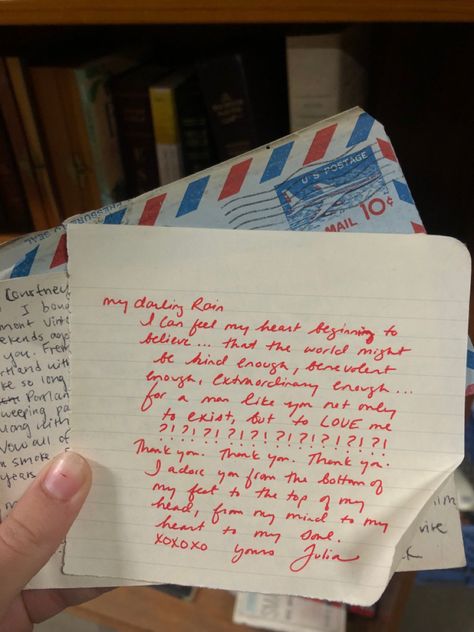 U.S. POSTAGE
MAIL 10¢
my darling Rain
I can feel my heart beginning to
believe... that the world might
be kind enough, benevolent
enough, extraordinary enough...
for a man like you not only
to exist, but to LOVE me
?!?!?!?!?!?!?!?!?!?!
Thank you. Thank you. Thank you.
I adore you from the bottom of
my feet to the top of my
head, from my mind to my
heart to my soul.
xoxoxo yours Julia
Courtney
I
you.
so long
Portlan
along with
all of
smoke
years